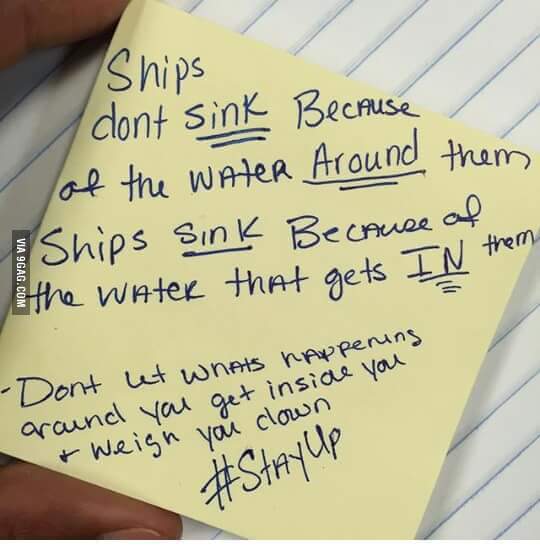 Ships
dont sink Because
of the water Around them
Ships sink Because of
the water that gets IN them
- Dont let whats happening
around you get inside you
+ weigh you down
#StayUp
VIA 9GAG.COM